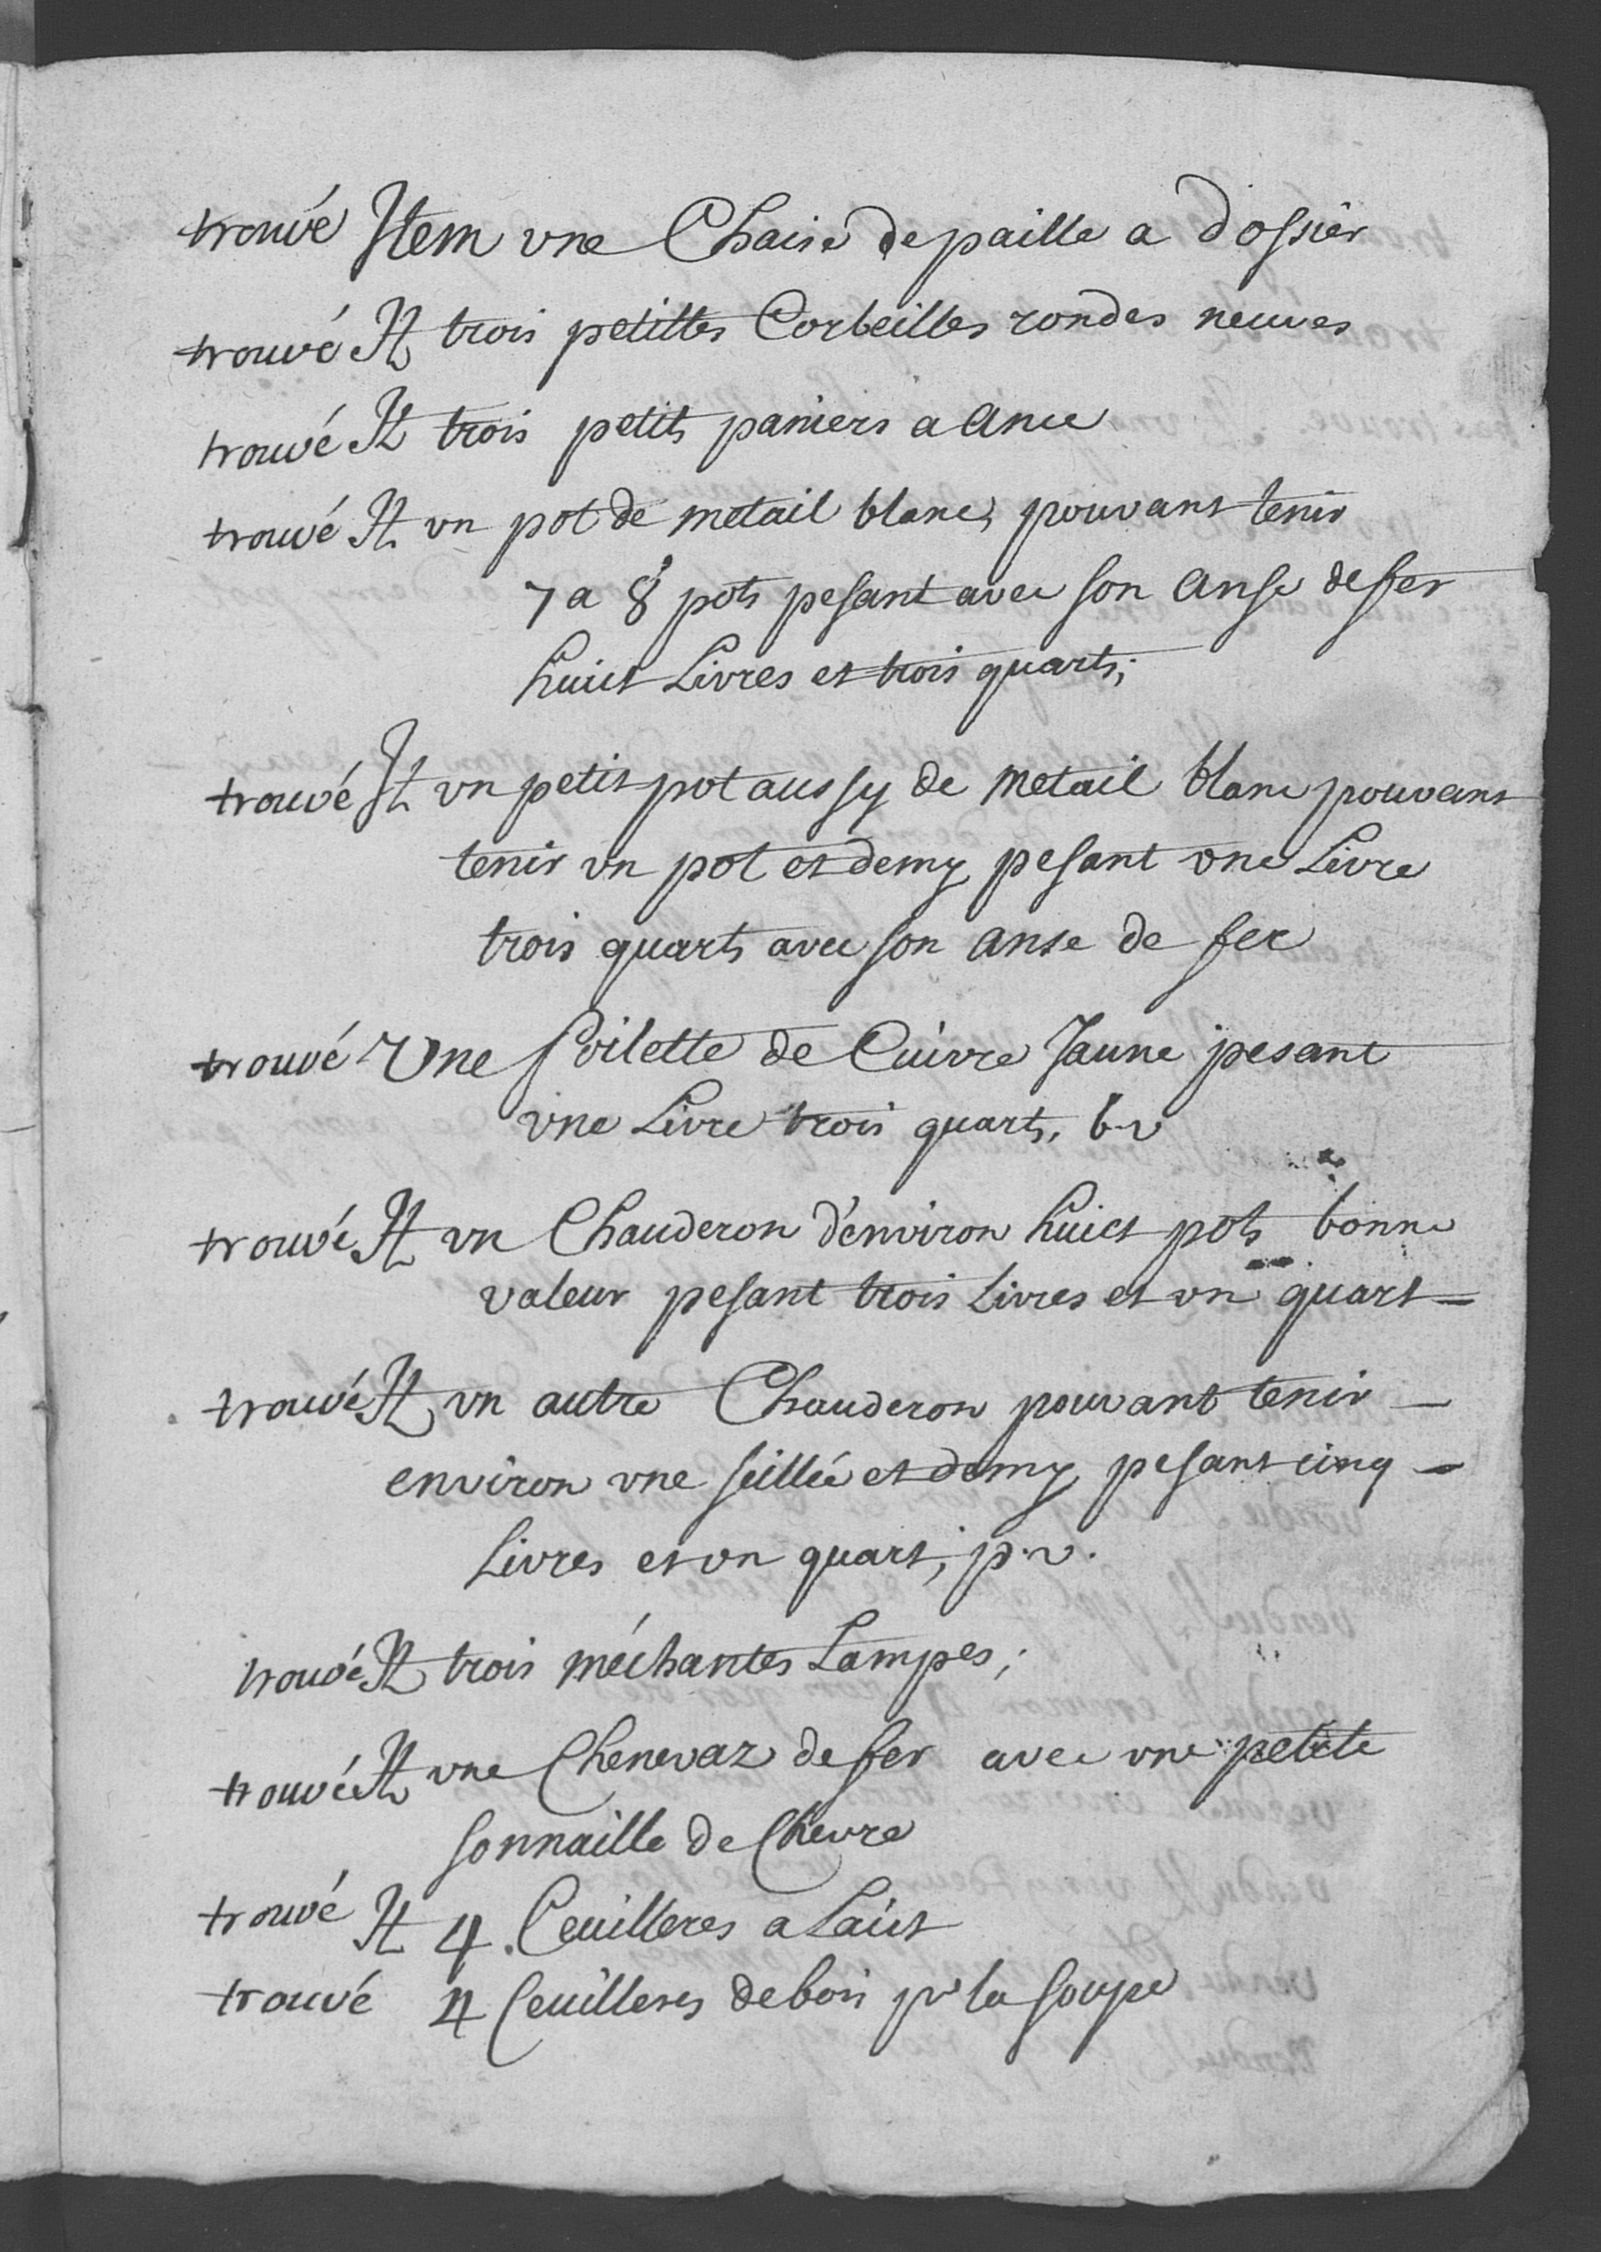 trouvé Item vne Chaise de paille a dossier
trouvé It trois petittes Corbeilles rondes neuves
trouvé It trois petits paniers a ance
trouvé It vn pot de metail blanc, pouvant tenir
7 a 8 pots pesant avec son anse de fer
huict Livres et trois quarts;
trouvé It vn petit pot aussy de metail blanc pouvant
tenir vn pot et demy pesant vne Livre
trois quarts avec son anse de fer
trouvé Une Poilette de Cuivre Jaune pesant
vne Livre trois quarts. b. v
trouvé It vn Chauderon d'environ huict pots bonne
valeur pesant trois Livres et vn quart —
trouvé It vn autre Chauderon pouvant tenir —
environ vne seillée et demy pesant cinq —
Livres et vn quart; p. v.
trouvé It trois méchantes Lampes;
trouvé It vne Chenevaz de fer avec vne petite
sonnaille de Chevre
trouvé It 4. Ceuilleres a Laict
trouvé 4 Ceuilleres de bois pr la soupe